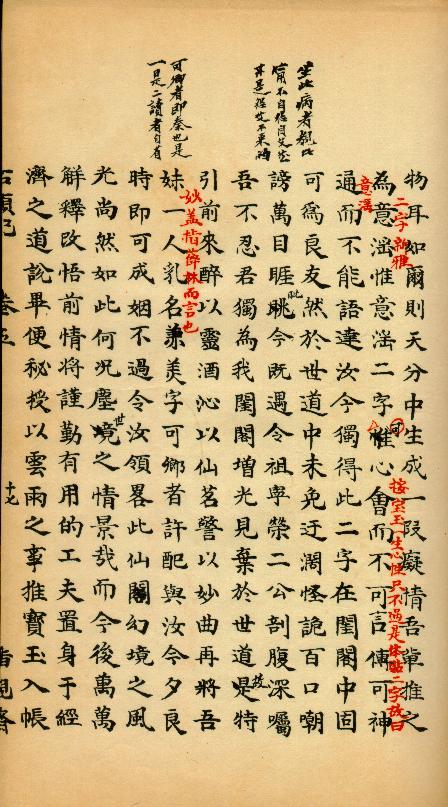 物耳如爾則天分中生成一段癡情吾輩推之
為意淫惟意淫二字惟心會而不可言傳可神
通而不能語達汝今獨得此二字在閨閣中固
可為良友然於世道中未免迂濶怪詭百口嘲
謗萬目睚眺今既遇令祖寧榮二公剖腹深囑
眦
吾不忍君獨為我閨閣增光見棄於世道是特
故
引前來醉以靈酒沁以仙茗警以妙曲再將吾
妹一人乳名兼美字可卿者許配與汝今夕良
時即可成姻不過令汝領畧此仙閣幻境之風
光尚然如此何况塵境之情景哉而今後萬萬
世
解釋改悟前情將謹勤有用的工夫置身于經
濟之道說畢便秘授以雲雨之事推寶玉入帳
二字新雅
按寶玉一生心性只不過是体貼二字故曰
意淫
可
妙盖指薛林而言也
坐此病者
可卿者即秦也是
一是二讀者自有
石頭記 卷五 十七 脂硯齋